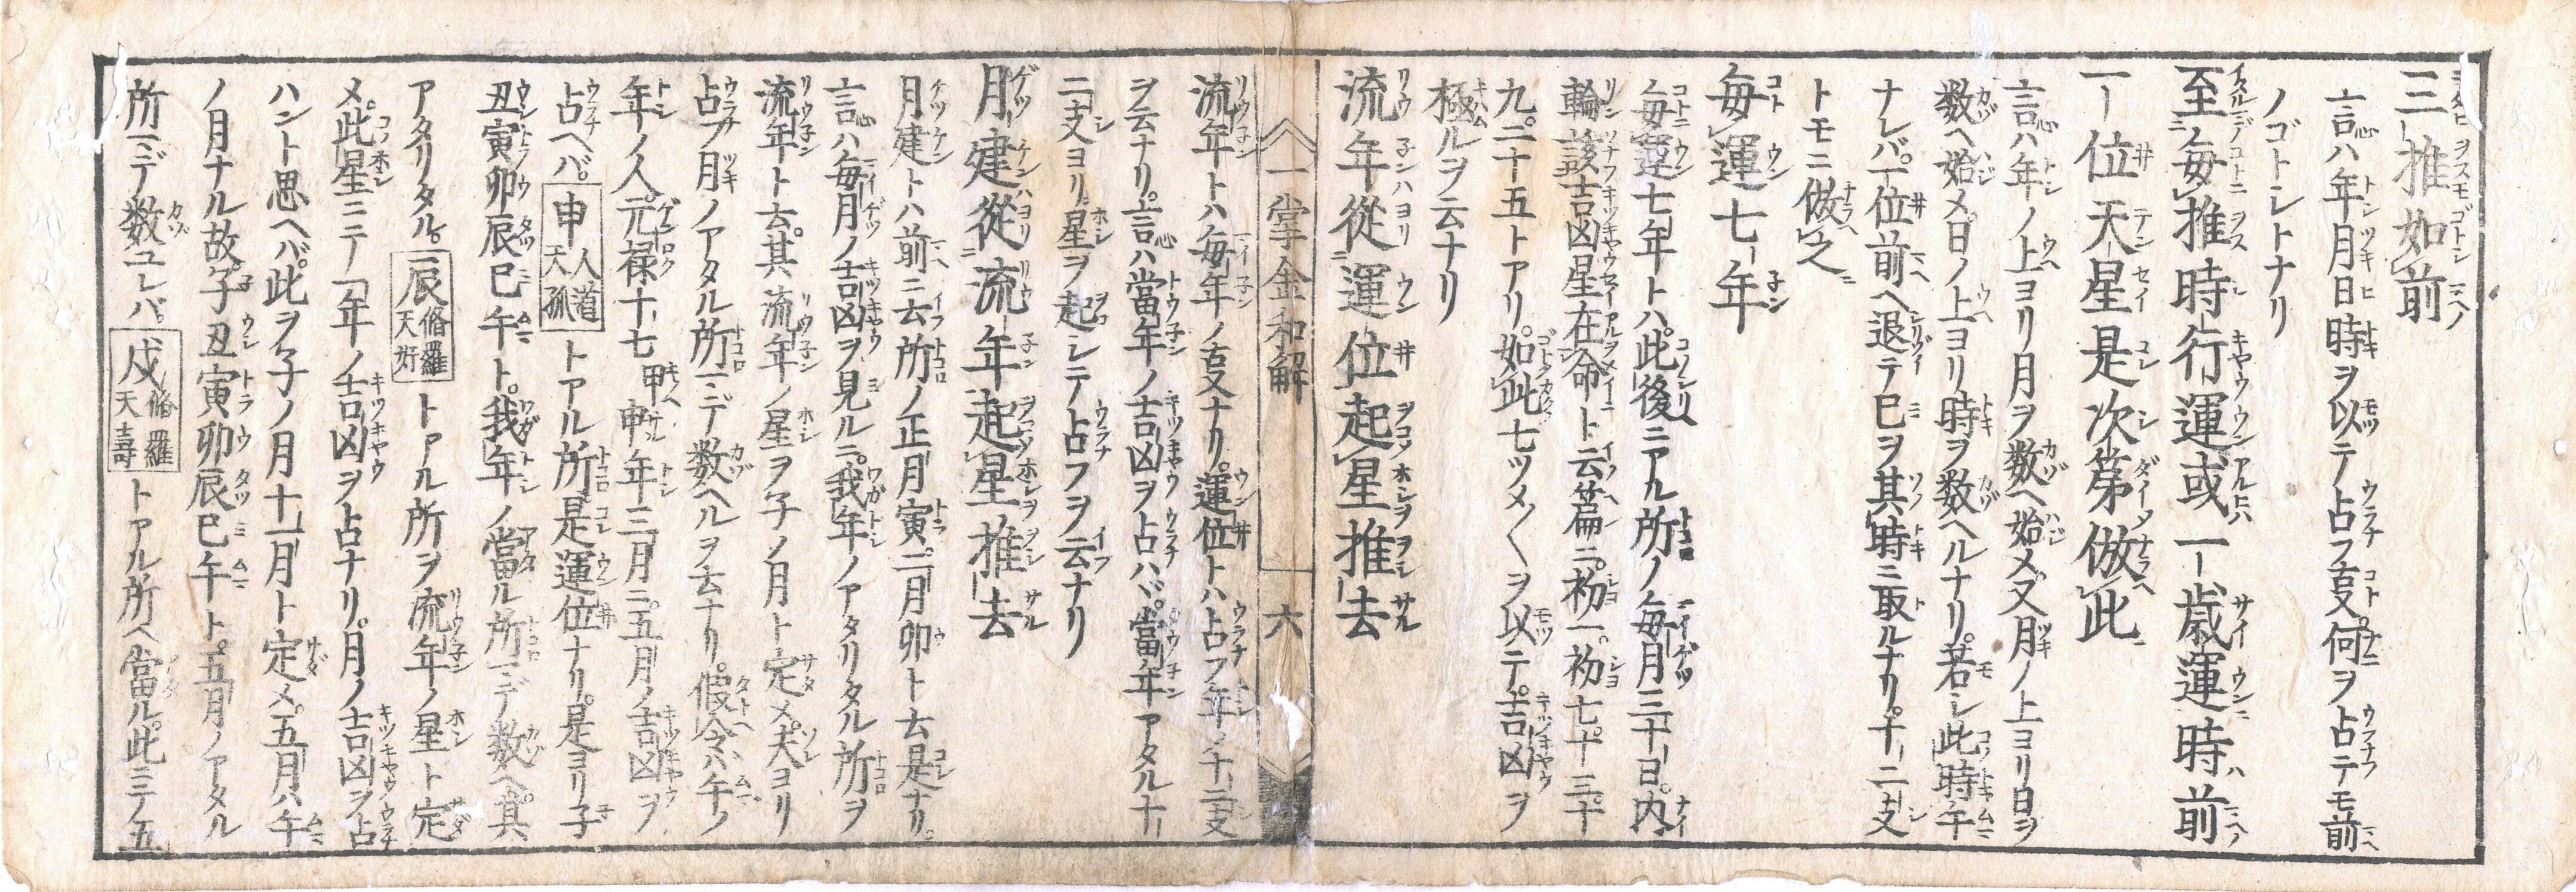 三推如前
言ハ年月日時ヲ以テ占フ叓何ヲ占テモ前
ノゴトシトナリ
至毎推時行運或一歳運時前
一位天星是次第倣此
言ハ年ノ上ヨリ月ヲ数ヘ始メ又月ノ上ヨリ日ヲ
数ヘ始メ日ノ上ヨリ時ヲ数ヘルナリ。若シ此時午
ナレバ一位前ヘ退テ巳ヲ其時ニ取ルナリ。十二支
トモニ倣之
毎運七年
毎運七年トハ。此後ニアル所ノ毎月三十日。内
輪該吉凶星在命ト云篇ニ。初一。初七。十三。十
九。二十五トアリ。如此七ツメ〱ヲ以テ。吉凶ヲ
極ルヲ云ナリ
流年從運位起星推去
一掌金和解
六
流年トハ毎年ノ叓ナリ。運位トハト占フ年ノ十二支
ヲ云ナリ。言ハ當年ノ吉凶ヲ占ハヾ。當年アタル十
二支ヨリ。星ヲ起シテ占フヲ云ナリ
月建從流年起星推去
月建トハ前ニ云所ノ正月寅。二月卯ト云是ナリ。
言ハ毎月ノ吉凶ヲ見ルニ。我年ノアタリタル所ヲ
流年ト云。其流年ノ星ヲ子ノ月ト定メ。夫ヨリ
占フ月ノアタル所マデ数ヘルヲ云ナリ。假令ハ午ノ
年ノ人。元禄十七甲申年三月ニ。五月ノ吉凶ヲ
占ヘバ。申人道天孤トアル所是運位ナリ。是ヨリ子
丑寅卯辰巳午ト。我年ノ當ル所マデ数ヘ。其
アタリタル。辰脩羅天奸トアル所ヲ流年ノ星ト定
メ。此星ニテ一年ノ吉凶ヲ占ナリ。月ノ吉凶ヲ占
ハント思ヘバ。此ヲ子ノ月十一月ト定メ。五月ハ午
ノ月ナル故。子丑寅卯辰巳午ト。五月ノアタル
所マデ数ユレバ。戌脩羅天壽トアル所ヘ當ル。此ニテ五